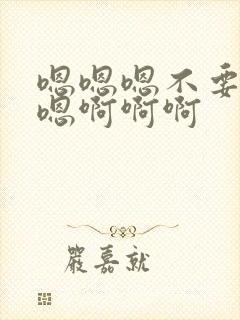 嗯嗯嗯不要
嗯啊啊啊
嚴嘉就